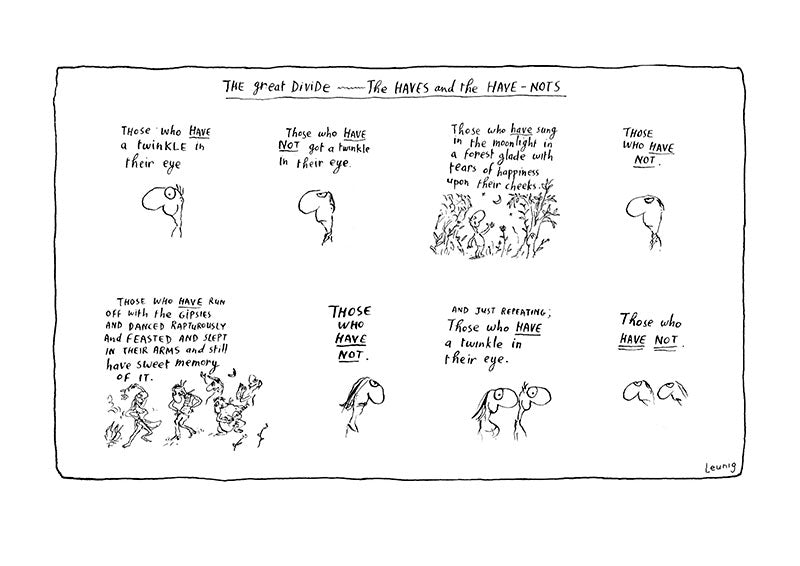 THE great DIVIDE — The HAVES and the HAVE-NOTS
Those who HAVE
a twinkle in
their eye
Those who HAVE
NOT got a twinkle
in their eye.
Those who have sung
in the moonlight in
a forest glade with
tears of happiness
upon their cheeks.
THOSE
WHO HAVE
NOT.
THOSE WHO HAVE RUN
OFF with the GIPSIES
AND DANCED RAPTUROUSLY
And FEASTED AND SLEPT
IN THEIR ARMS and still
have sweet memory
OF IT.
THOSE
WHO
HAVE
NOT.
AND JUST REPEATING;
Those who HAVE
a twinkle in
their eye.
Those who
HAVE NOT.
Leunig